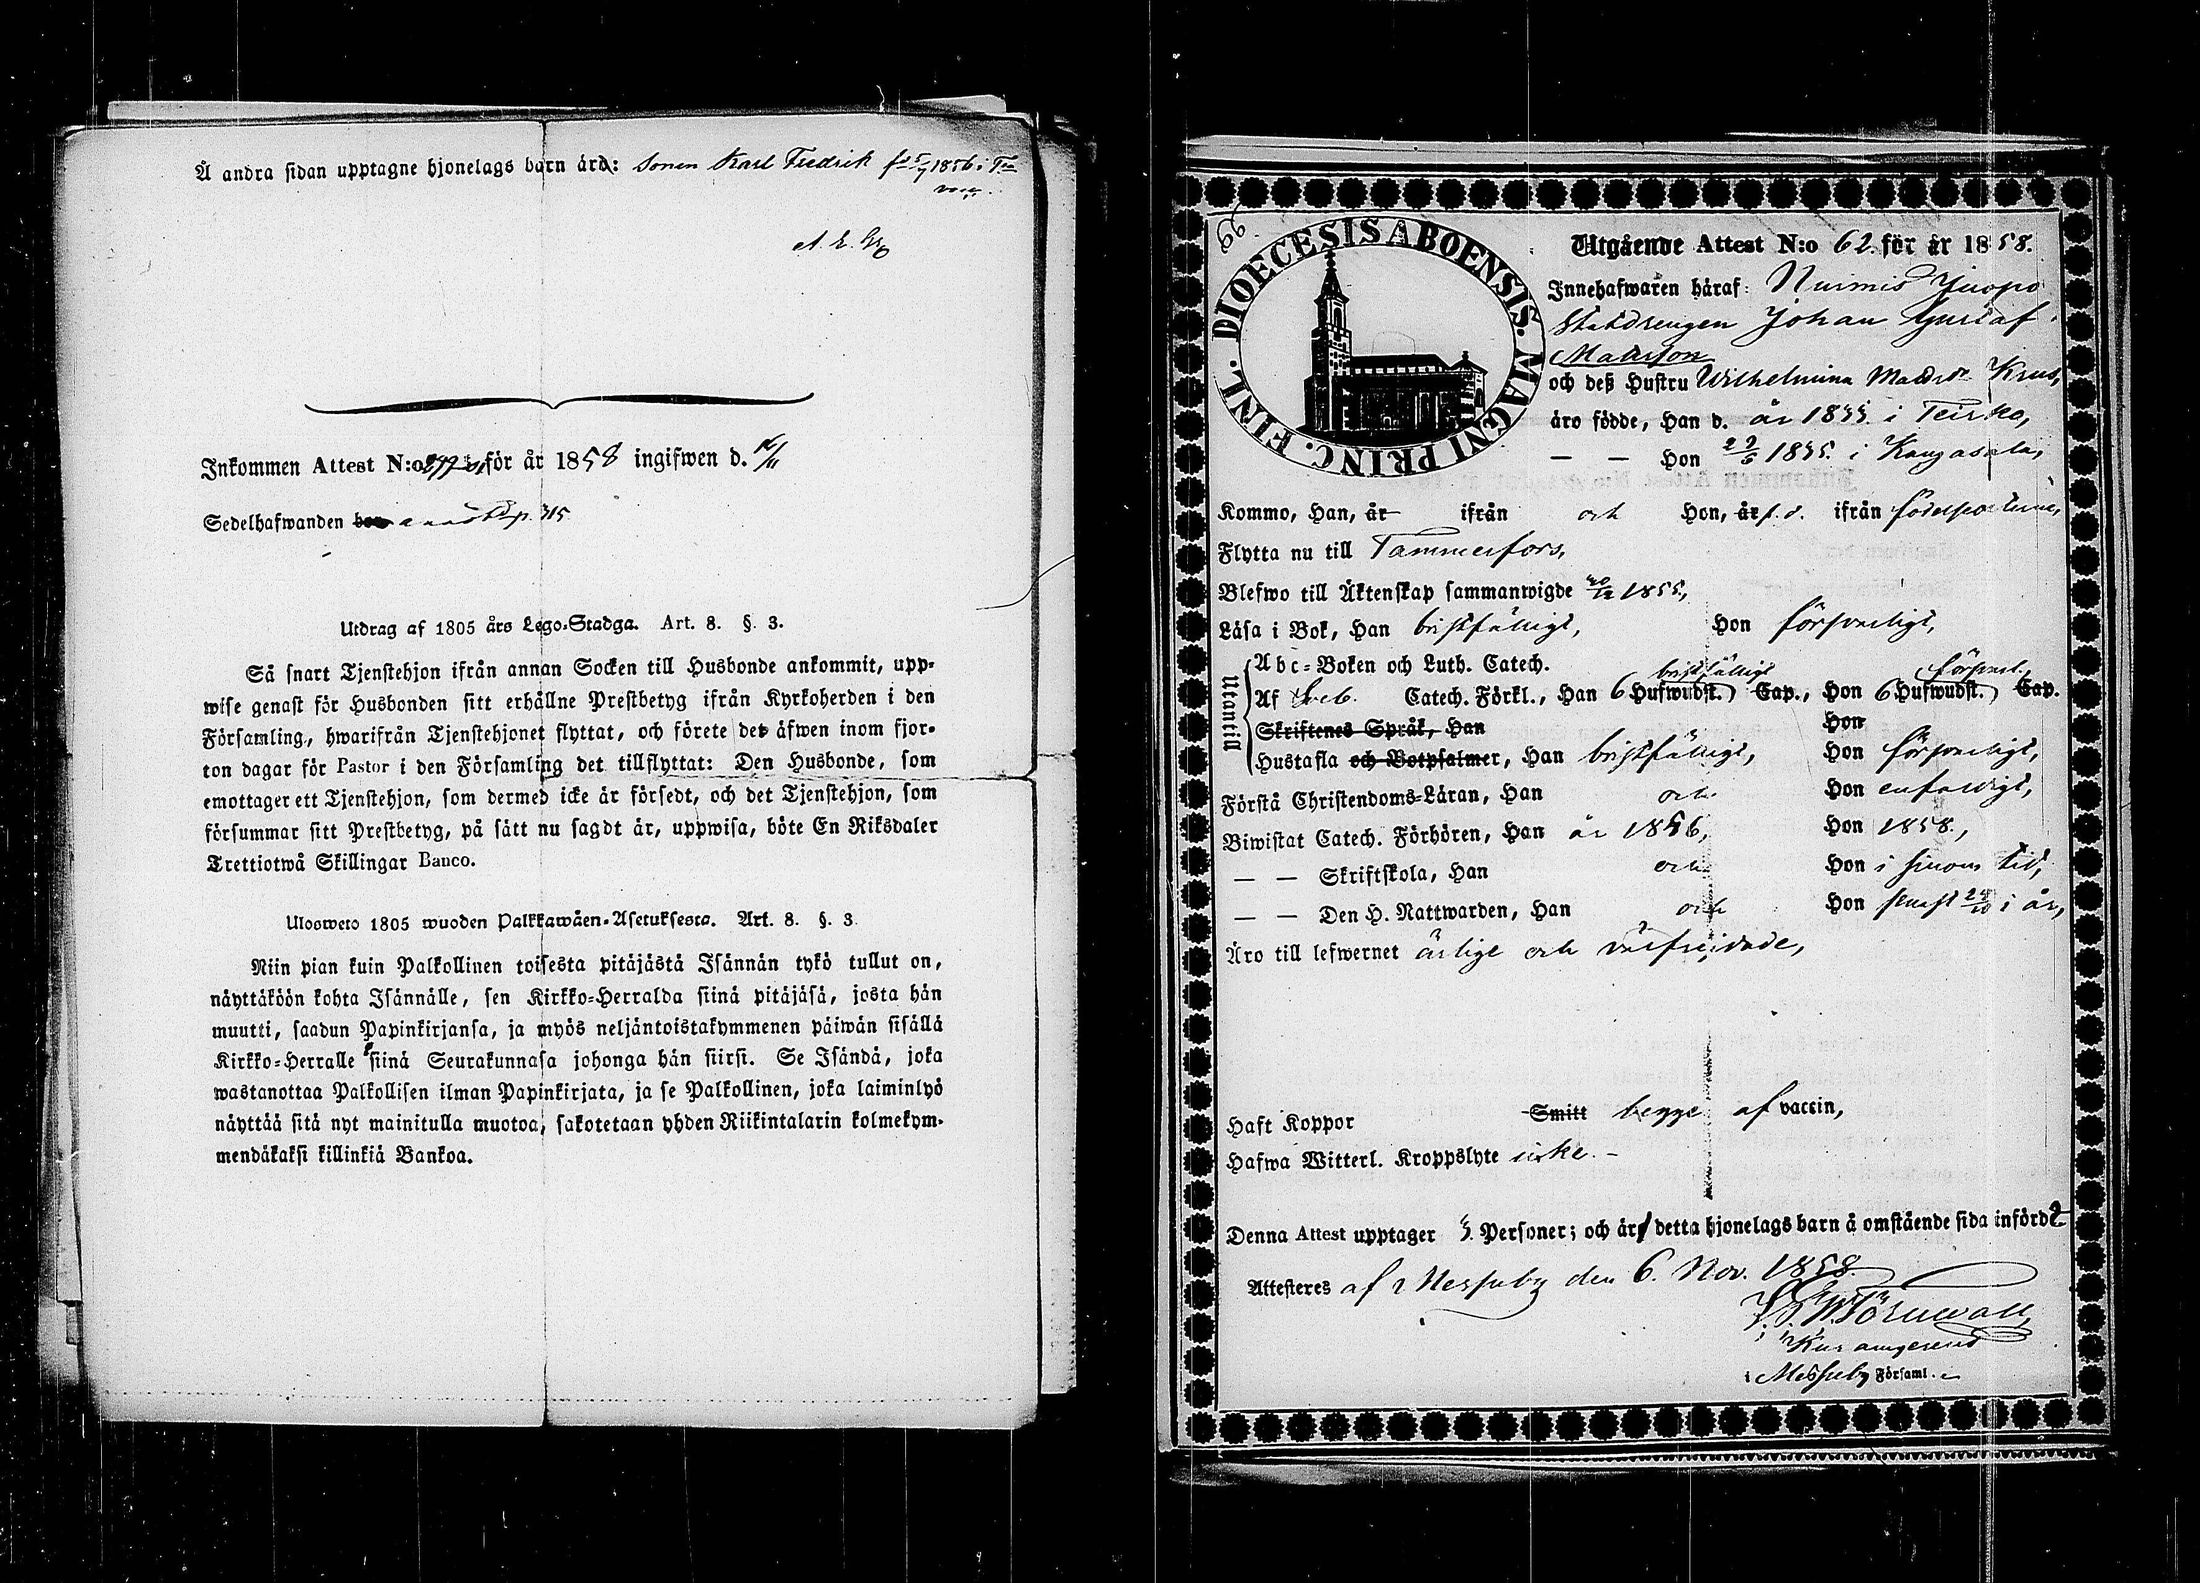 Å andra sidan upptagne hjonelags barn äro: sonen Karl Fredrik f. 5/7 1856 i
Inkommen Attest N:o för år 1858 ingifwen d.
Sedelhafwanden
Utdrag af 1805 års Lego-Stadga. Art. 8. §. 3.
Så snart Tjenstehjon ifrån annan Socken till Husbonde ankommit, upp-
wise genast för Husbonden sitt erhållne Prestbetyg ifrån Kyrkoherden i den
Församling, hwarifrån Tjenstehjonet flyttat, och förete det äfwen inom fjor-
ton dagar för Pastor i den Församling det tillflyttat: Den Husbonde, som
emottager ett Tjenstehjon, som dermed icke är försedt, och det Tjenstehjon, som
försummar sitt Prestbetyg, på sätt nu sagdt är, uppwisa, böte En Riksdaler
Trettiotwå Skillingar Banco.
Ulosweto 1805 wuoden Palkkawäen-Asetuksesta. Art. 8. §. 3.
Niin pian kuin Palkollinen toisesta pitäjästä Isännän tykö tullut on,
näyttäköön kohta Isännälle, sen Kirkko-Herralda siinä pitäjäsä, josta hän
muutti, saadun Papinkirjansa, ja myös neljäntoistakymmenen päiwän sisällä
Kirkko-Herralle siinä Seurakunnasa johonga hän siirsi. Se Isändä, joka
wastanottaa Palkollisen ilman Papinkirjata, ja se Palkollinen, joka laiminlyö
näyttää sitä nyt mainitulla muotoa, sakotetaan yhden Riikintalarin kolmekym-
mendäkaksi killinkiä Bankoa.
99
DIOECESIS ABOENSIS. MAGNI PRINC. FINL.
Utgående Attest N:o 62 för år 1858.
Innehafwaren häraf: Nurmis Juopo
Statdrengen Johan Gustaf
Matsson
och deß Hustru Wilhelmina Matsdr Krus,
äro födde, Han d. år 1833 i Teisko,
— — Hon 29/6 1835 i Kangasala,
Kommo, Han, år ifrån och Hon, år f. d. ifrån födelseorterne,
Flytta nu till Tammerfors,
Blefwo till Äktenskap sammanwigde 30/12 1855,
Läsa i Bok, Han bristfälligt, Hon försvarligt,
Utantill
Abc-Boken och Luth. Catech. bristfälligt försvarl.
Af Sveb. Catech. Förkl., Han 6 Hufwudst. Cap., Hon 6 Hufwudst. Cap.
Skriftenes Språk, Han Hon
Hustafla och Botpsalmer, Han bristfälligt, Hon försvarligt,
Förstå Christendoms-Läran, Han och Hon enfaldigt,
Biwistat Catech. Förhören, Han år 1856, Hon 1858,
— — Skriftskola, Han och Hon i sinom tid,
— — Den H. Nattwarden, Han och Hon senast 24/10 i år,
Äro till lefwernet ärligt och välfrejdade,
Haft Koppor Smitt begge af vaccin,
Hafwa Witterl. Kroppslyte icke. -
Denna Attest upptager 3 Personer; och är detta hjonelags barn å omstående sida införde
Attesteres af Messuby den 6. Nov. 1858.
Törnwall
Messuby Församl.